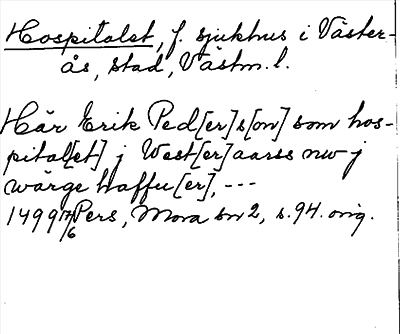 Hospitalet, f. sjukhus i Väster-
ås, stad, Västm. l.
Här Erik Ped[er]s[on] som hos-
pital[et] j West[er]aarss nw j
wärge haffu[er], ---
1499 17/6 Pers, Mora sn 2, s. 94. orig.